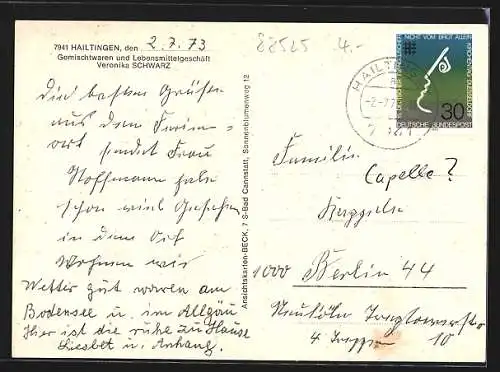 7941 HAILTINGEN, den 2.7.73
Gemischtwaren und Lebensmittelgeschäft
Veronika SCHWARZ
Die besten Grüße
aus dem Ferien-
ort sendet Frau
Hoffmann habe
schon viel Gesehen
in dem Ort
Wohnen wir
Wetter gut waren am
Bodensee u. im Allgäu
Hier ist die ruhe zu Hause
Liesbet u. Anhang.
Ansichtskarten-BECK, 7 S-Bad Cannstatt, Sonnenblumenweg 12
88525 4.-
HAILTINGEN
NICHT VOM BROT ALLEIN
30
DEUTSCHE BUNDESPOST
Familie
Capelle?
1000 Berlin 44
Neukölln
4 Treppen 10